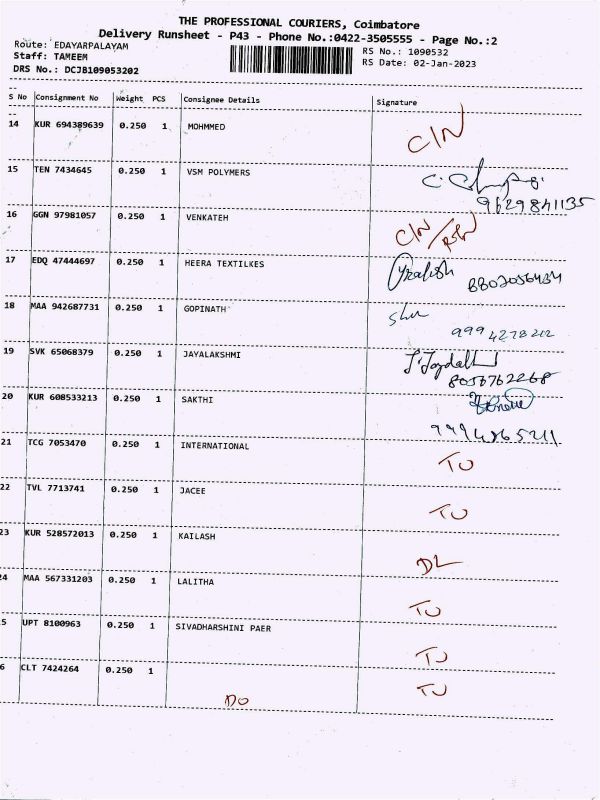 THE PROFESSIONAL COURIERS, Coimbatore
Delivery Runsheet - P43 - Phone No.:0422-3505555 - Page No.:2
Route: EDAYARPALAYAM
RS No.: 1090532
Staff: TAMEEM
RS Date: 02-Jan-2023
DRS No.: DCJB109053202
S No Consignment No Weight PCS Consignee Details Signature
14 KUR 694389639 0.250 1 MOHMMED C/N
15 TEN 7434645 0.250 1 VSM POLYMERS
9629841135
16 GGN 97981057 0.250 1 VENKATEH C/N
17 EDQ 47444697 0.250 1 HEERA TEXTILKES
18 MAA 942687731 0.250 1 GOPINATH
19 SVK 65068379 0.250 1 JAYALAKSHMI
8056762268
20 KUR 608533213 0.250 1 SAKTHI
21 TCG 7053470 0.250 1 INTERNATIONAL TU
22 TVL 7713741 0.250 1 JACEE TU
23 KUR 528572013 0.250 1 KAILASH DL
24 MAA 567331203 0.250 1 LALITHA TU
5 UPT 8100963 0.250 1 SIVADHARSHINI PAER TU
6 CLT 7424264 0.250 1 DO TU